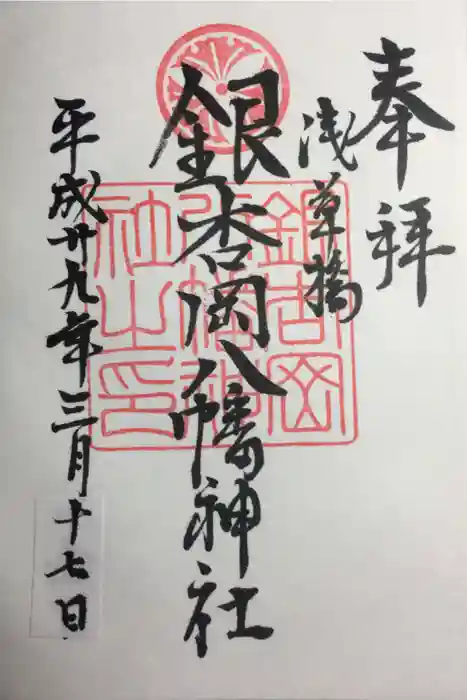 奉拝
浅草橋
銀杏岡八幡神社
平成廿九年三月十七日
銀杏岡
八幡神
社之印